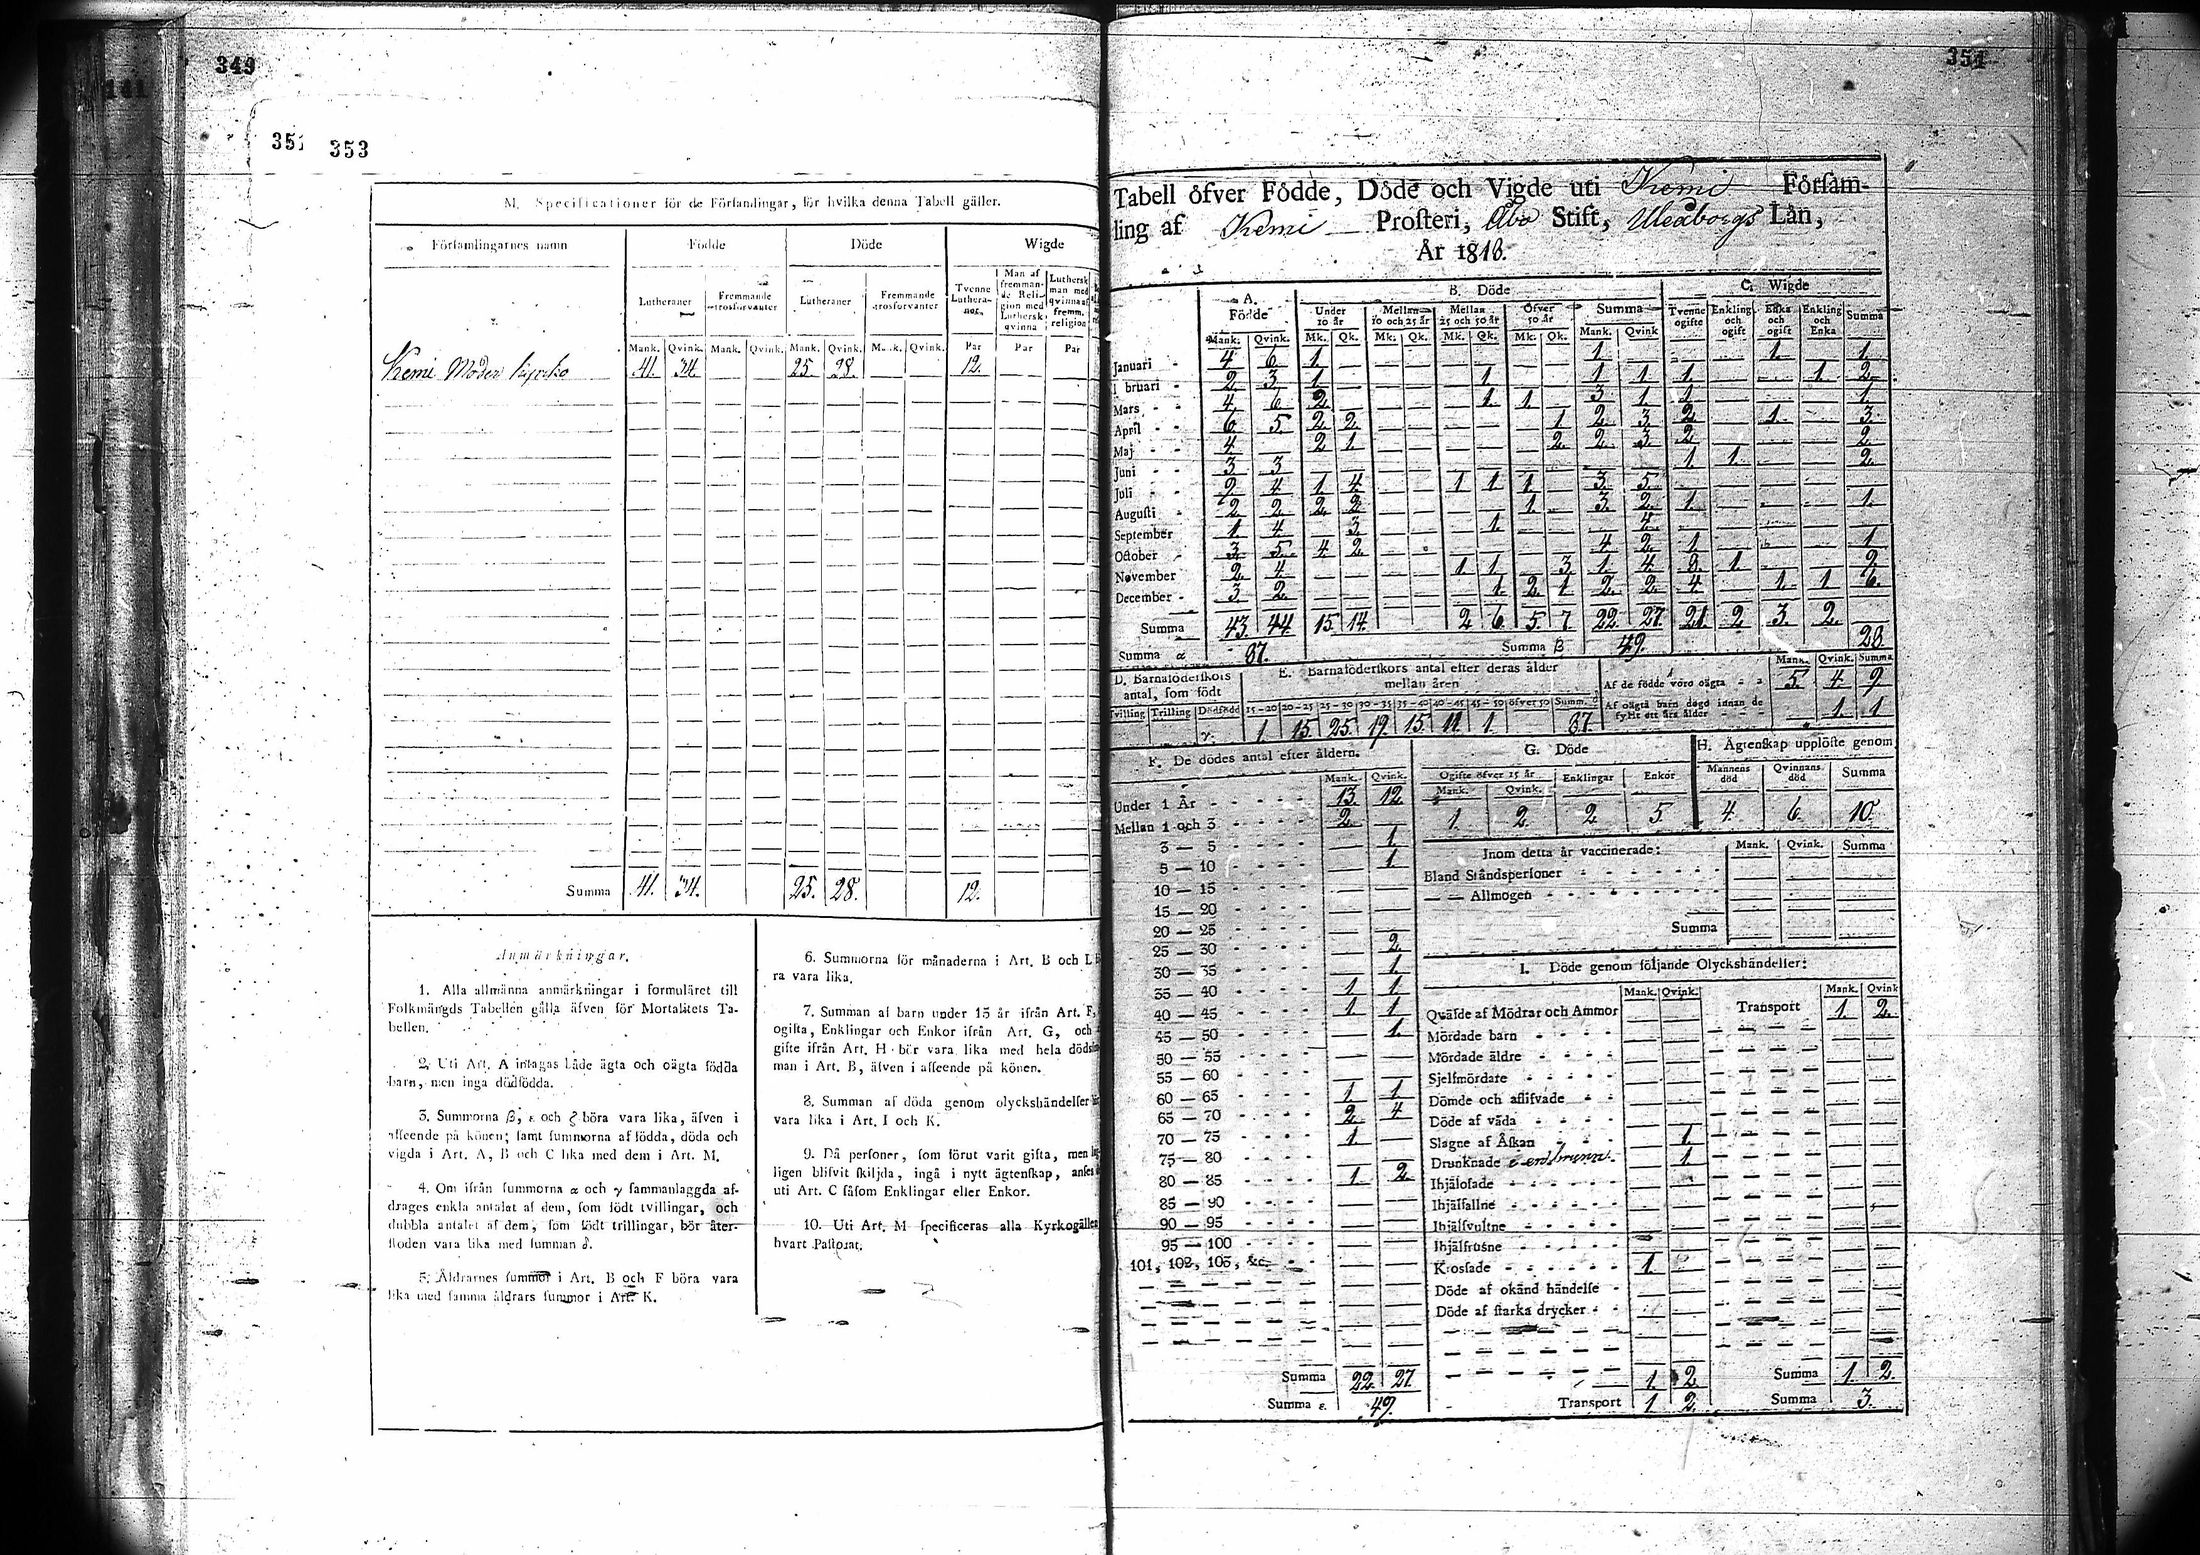 349
141
351
353
M. Specificationer för de Församlingar, för hvilka denna Tabell gäller.
Församlingarnes namn Födde Döde Wigde
Lutheraner Fremmande trosförvanter Lutheraner Fremmande trosförvanter Tvenne Lutheraner Man af fremmande Religion med Luthersk qvinna Luthersk man med qvinna af fremm. religion
Mank. Qvink. Mank. Qvink. Mank. Qvink. Mank. Qvink. Par Par Par
Kemi Moder kyrko 41. 34. 25. 28. 12.
Summa 41. 34. 25. 28. 12.
Anmärkningar.
1. Alla allmänna anmärkningar i formuläret till
Folkmängds Tabellen gälla äfven för Mortalitets Ta-
bellen.
2. Uti Art. A intagas både ägta och oägta födda
barn, men inga dödfödda.
3. Summorna β, ε och ζ böra vara lika, äfven i
affeende på könen; samt summorna af födda, döda och
vigda i Art. A, B och C lika med dem i Art. M.
4. Om ifrån summorna α och γ sammanlaggda af-
drages enkla antalet af dem, som födt tvillingar, och
dubbla antalet af dem, som födt trillingar, bör åter-
stoden vara lika med summan δ.
5. Åldrarnes summor i Art. B och F böra vara
lika med samma åldrars summor i Art. K.
6. Summorna för månaderna i Art. B och L
ra vara lika.
7. Summan af barn under 15 år ifrån Art. F,
ogifta, Enklingar och Enkor ifrån Art. G, och
gifte ifrån Art. H bör vara lika med hela döds
man i Art. B, äfven i affeende på könen.
8. Summan af döda genom olyckshändelser
vara lika i Art. I och K.
9. Då personer, som förut varit gifta, men
ligen blifvit skiljda, ingå i nytt ägtenskap, anses
uti Art. C såsom Enklingar eller Enkor.
10. Uti Art. M specificeras alla Kyrkogäller
hvart Pastorat.
351
Tabell öfver Födde, Döde och Vigde uti Kemi Försam-
ling af Kemi Prosteri, Åbo Stift, Uleåborgs Län,
År 1818.
A. Födde B. Döde C. Wigde
Under 10 år Mellan 10 och 25 år Mellan 25 och 50 år Öfver 50 år Summa Tvenne ogifte Enkling och ogift Enka och ogift Enkling och Enka Summa
Mank. Qvink. Mk. Qk. Mk. Qk. Mk. Qk. Mk. Qk. Mank. Qvink
Januari 4 6. 1. 1. 1. 1.
bruari 2. 3. 1. 1. 1. 1. 1. 1. 2.
Mars 4. 6 2. 1. 1. 3. 1. 1. 1.
April 6. 5. 2. 2. 1. 2. 3. 2. 1. 3.
Maj 4. 2. 1. 2. 2. 3. 2. 2.
Juni 3. 3. 1. 1. 2.
Juli 2. 4. 1. 4. 1 1 1. 3. 5.
Augusti 2. 2. 2. 2. 1. 3. 2. 1. 1.
September 1. 4. 3. 1. 4.
October 3. 5. 4. 2. 4. 2. 1. 1
November 2. 4. 1 1. 3. 1. 4. 1 2.
December 3. 2. 1. 2. 1 2. 2. 4. 1. 1 6.
Summa 43. 44. 15. 14. 2. 6. 5. 7 22. 27. 21. 2 3. 2.
Summa α 87. Summa β 49. 28.
D. Barnaföderskors antal, som födt
E. Barnaföderskors antal efter deras ålder mellan åren
Mank. Qvink. Summa
Af de födde voro oägta 5. 4. 9.
Af oägta barn dogo innan de fyllt ett års ålder 1. 1
Tvilling Trilling Dödfödd 15-20 20-25 25-30 30-35 35-40 40-45 45-50 öfver 50 Summ. δ
γ. 1 15. 25. 19. 15. 11. 1 87.
F. De dödes antal efter åldern.
Mank. Qvink.
Under 1 År 13. 12
Mellan 1 och 3 2.
3 — 5 1.
5 — 10 1.
10 — 15
15 — 20
20 — 25
25 — 30 2.
30 — 35 1.
35 — 40 1 1.
40 — 45 1 1
45 — 50 1.
50 — 55
55 — 60
60 — 65 1 1
65 — 70 2. 4
70 — 75 1
75 — 80
80 — 85 1 2
85 — 90
90 — 95
95 — 100
101, 102, 103, &c.
Summa 22. 27.
Summa ε. 49.
G. Döde
Ogifte öfver 15 år Enklingar Enkor
Mank. Qvink.
1. 2. 2 5.
H. Ägtenskap upplöste genom
Mannens död Qvinnans död Summa
4. 6. 10.
Inom detta år vaccinerade: Mank. Qvink. Summa
Bland Ståndspersoner
— — Allmogen
Summa
I. Döde genom följande Olyckshändelser:
Mank. Qvink. Mank. Qvink
Qväfde af Mödrar och Ammor Transport 1. 2.
Mördade barn
Mördade äldre
Sjelfmördare
Dömde och aflifvade
Döde af våda
Slagne af Åskan 1.
Drunknade 1.
Ihjälosade
Ihjälfallne
Ihjälsvultne
Ihjälfrusne
Krossade 1.
Döde af okänd händelse
Döde af starka drycker
1. 2. Summa 1. 2.
Transport 1 2. Summa 3.